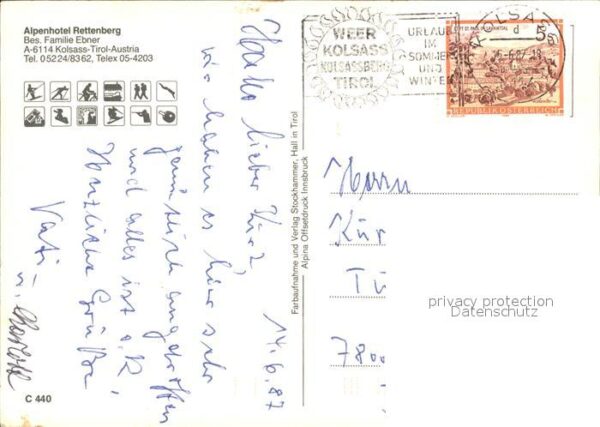 Alpenhotel Rettenberg
Bes. Familie Ebner
A-6114 Kolsass-Tirol-Austria
Tel. 05224/8362, Telex 05-4203
WEER
KOLSASS
KOLSASSBERG
TIROL
URLAUB
IM
SOMMER
UND
WINTER
KOLSASS
d
5
REPUBLIK ÖSTERREICH
14.6.87
Hallo lieber
wir haben es hier sehr
gemütlich angetroffen
und alles ist o.k.
Herzliche Grüße
Vati u.
Farbaufnahme und Verlag Stockhammer, Hall in Tirol
Alpina Offsetdruck Innsbruck
Herrn
Kur
Tü
780
privacy protection
Datenschutz
C 440